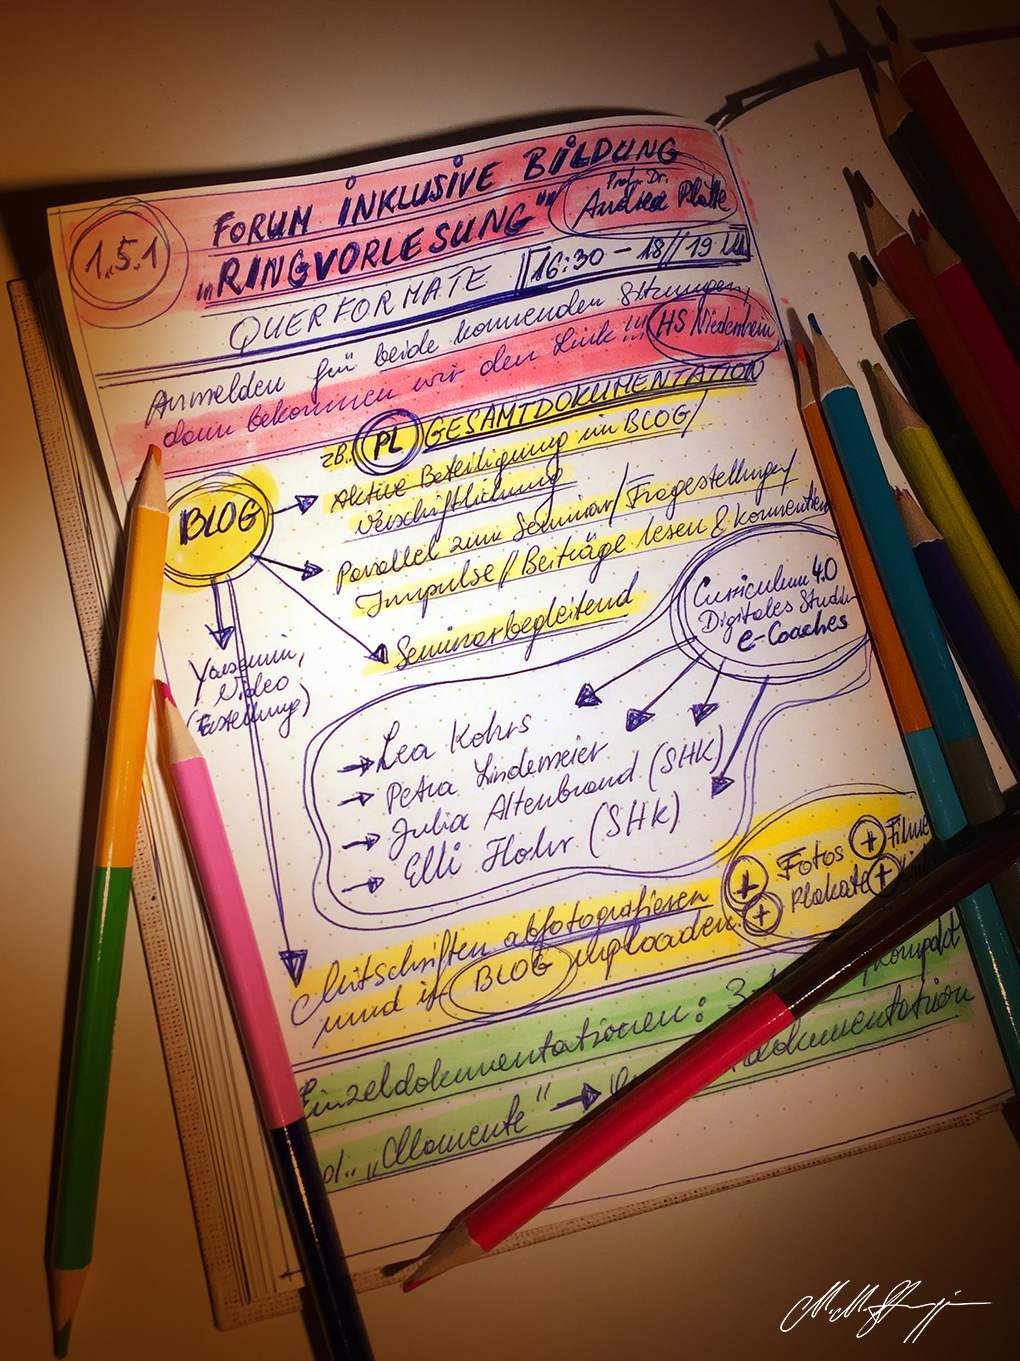 1.5.1
FORUM INKLUSIVE BILDUNG
„RINGVORLESUNG“
Prof. Dr.
Andrea Platte
QUERFORMATE 16:30 – 18//19
Anmelden für beide kommenden Sitzungen,
dann bekommen wir den Link!!!
HS Niederrhein
zB. PL GESAMTDOKUMENTATION
BLOG
Aktive Beteiligung im BLOG/
Verschriftlichung
Parallel zum Seminar/Fragestellungen/
Impulse/Beiträge lesen & kommentieren
Seminarbegleitend
Yasemin,
Video
(Erstellung)
Curriculum 4.0
Digitales Studium
e-Coaches
Lea Kohrs
Petra Lindemeier
Julia Altenbrand (SHK)
Elli Hohr (SHK)
Mitschriften abfotografieren
und in BLOG uploaden.
+ Fotos + Filme
+ Plakate +
Einzeldokumentationen: 3
kompakt
„Momente“ →
dokumentation